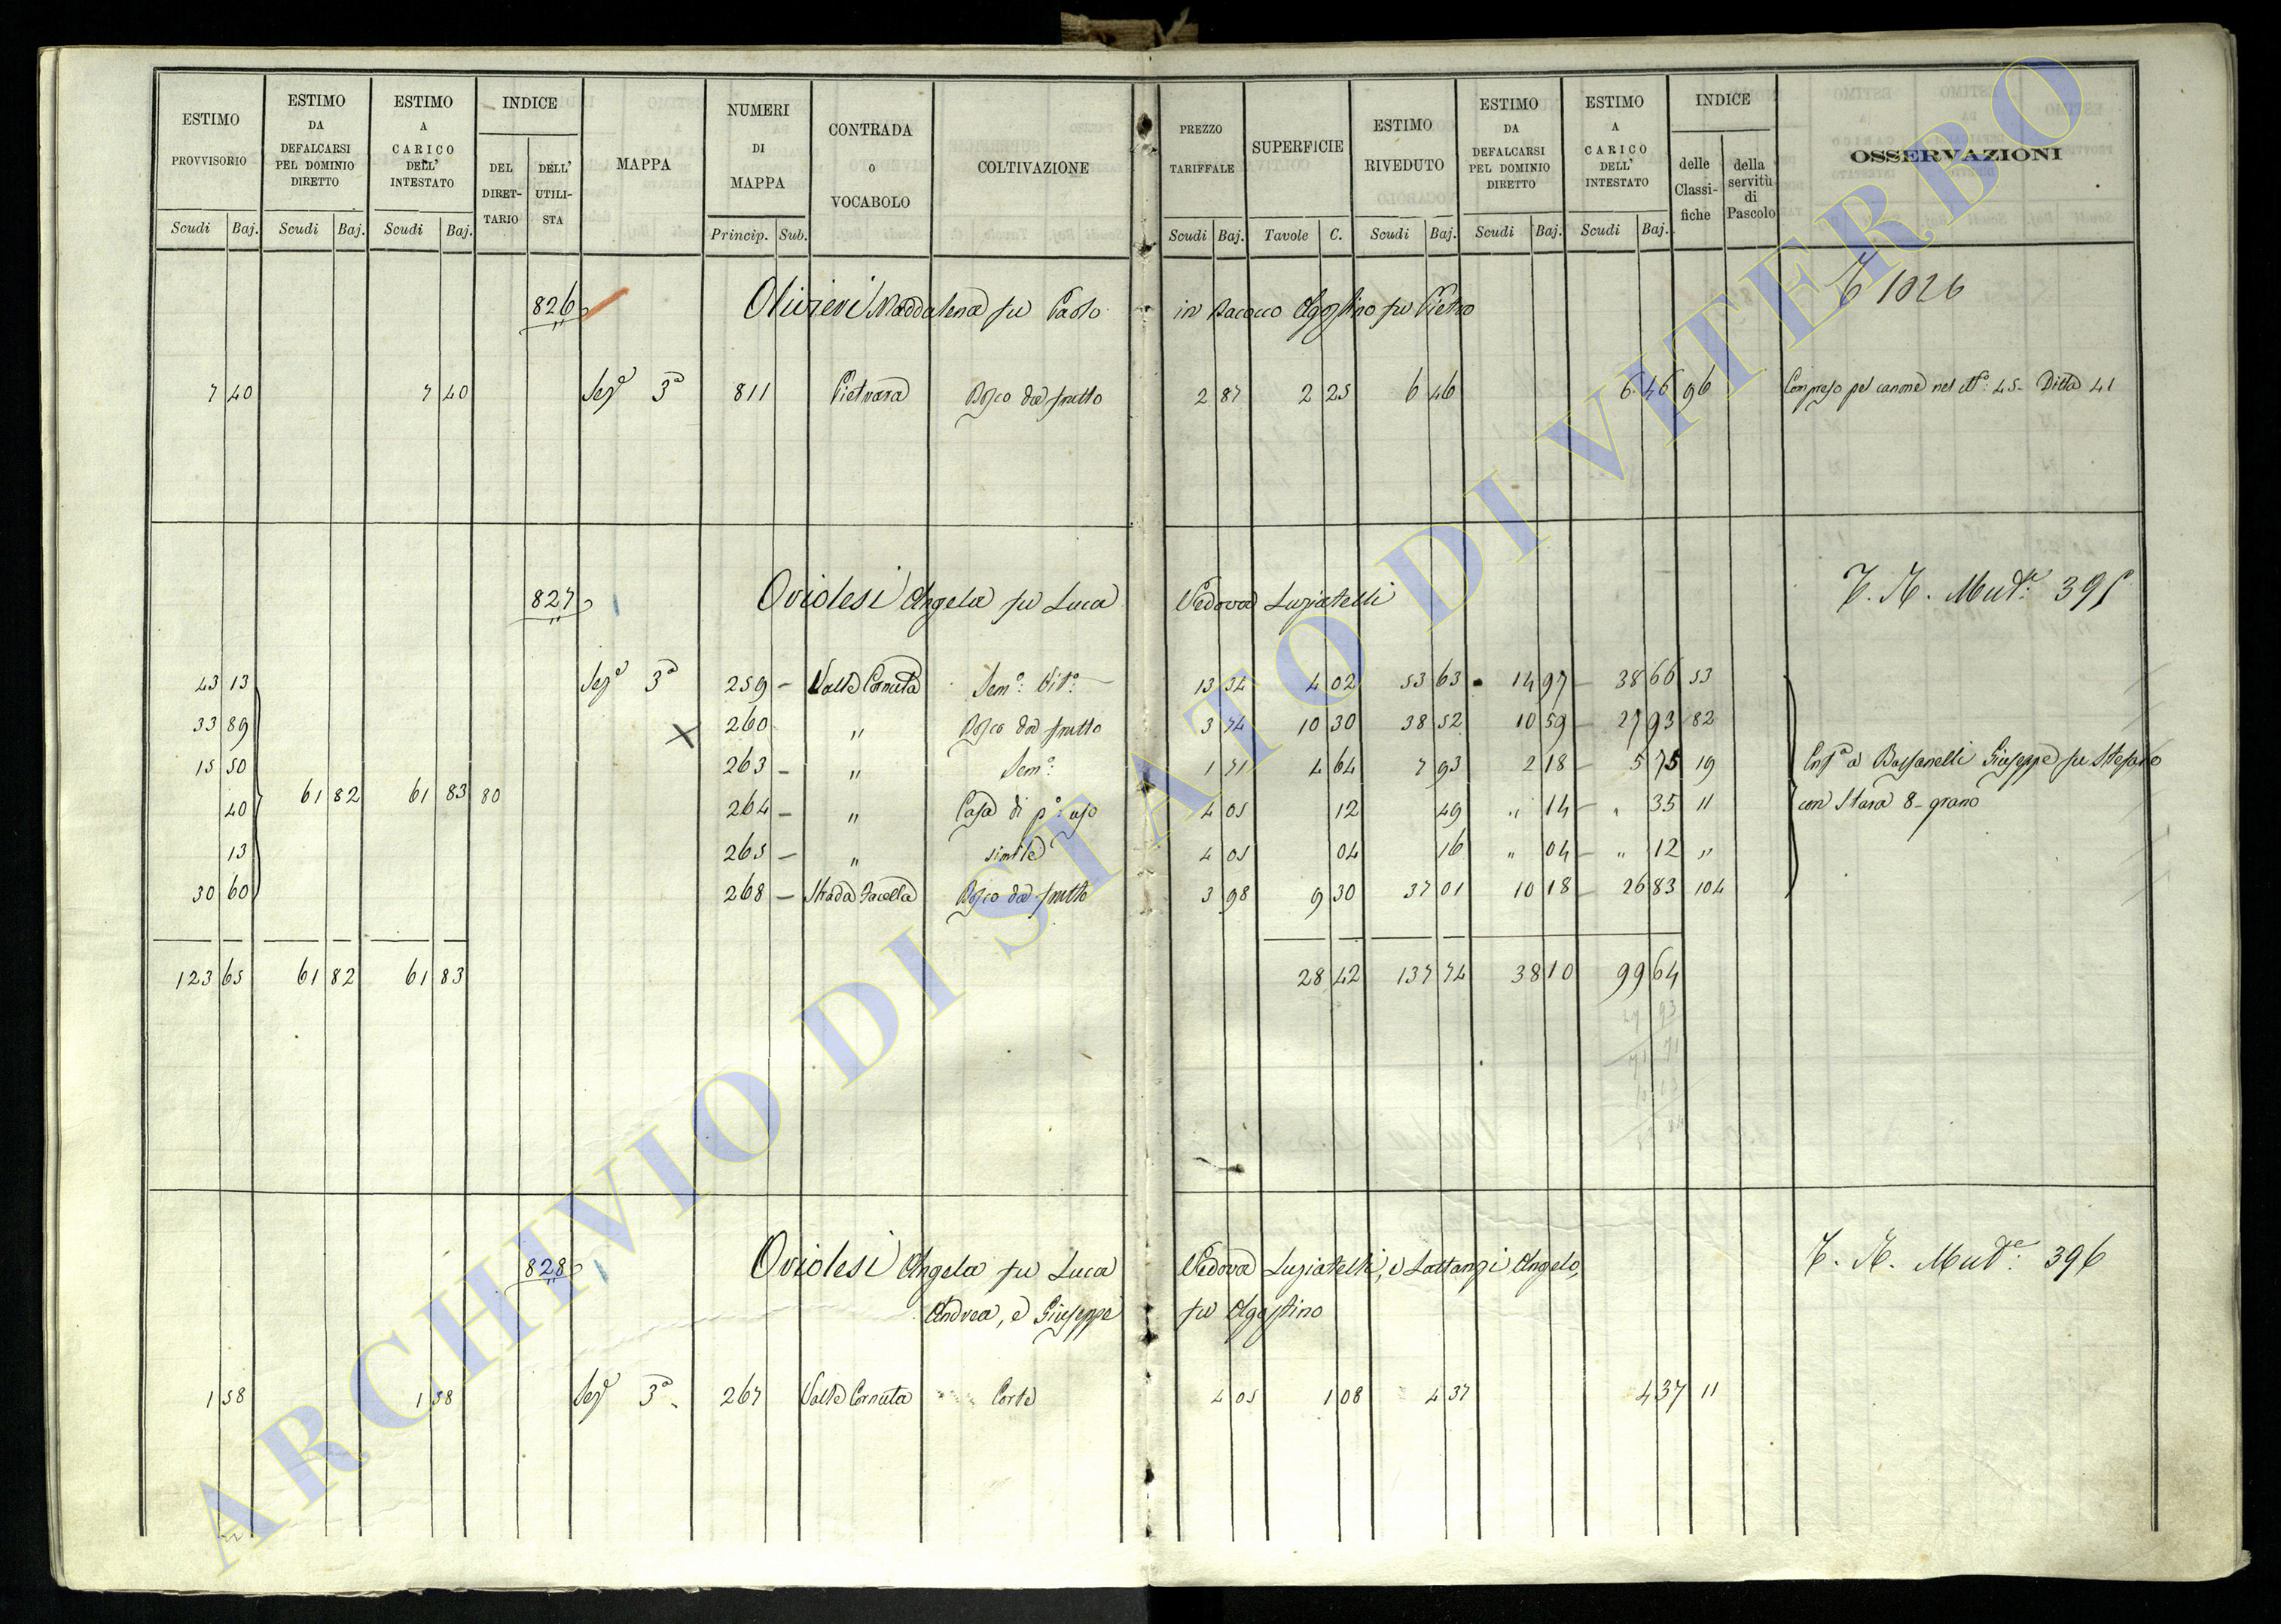 ESTIMO PROVVISORIO Scudi Baj.
ESTIMO DA DEFALCARSI PEL DOMINIO DIRETTO Scudi Baj.
ESTIMO A CARICO DELL' INTESTATO Scudi Baj.
INDICE DEL DIRET-TARIO DELL' UTILI-STA
MAPPA
NUMERI DI MAPPA Princip. Sub.
CONTRADA o VOCABOLO
COLTIVAZIONE
PREZZO TARIFFALE Scudi Baj.
SUPERFICIE Tavole C.
ESTIMO RIVEDUTO Scudi Baj.
ESTIMO DA DEFALCARSI PEL DOMINIO DIRETTO Scudi Baj.
ESTIMO A CARICO DELL' INTESTATO Scudi Baj.
INDICE delle Classi-fiche della servitù di Pascolo
OSSERVAZIONI
826 Olivieri Maddalena fu Paolo in Bacocco Agostino fu Pietro 1026
7 40 7 40 Sez.e 3a 811 Pietrara Bosco da frutto 2 87 2 25 6 46 6 46 96 Compreso pel canone nel No: 45 - Ditta 41
827 Oviolesi Angela fu Luca Vedova Luziatelli T. N. Mut.e 395
43 13 Sez.e 3a 259 - Valle Cornuta Sem.o Vit.o 13 34 4 02 53 63 14 97 - 38 66 53
33 89 260 " Bosco da frutto 3 74 10 30 38 52 10 59 - 27 93 82
15 50 263 - " Sem.o 1 71 4 64 7 93 2 18 - 5 75 19 Enf.a a Bassanelli Giuseppe fu Stefano
40 61 82 61 83 80 264 - " Casa di po: uso 4 05 12 49 " 14 - " 35 11 con Stara 8 - grano
13 265 - " simile 4 05 04 16 " 04 - " 12 "
30 60 268 - Strada Bosco da frutto 3 98 9 30 37 01 10 18 - 26 83 104
123 65 61 82 61 83 28 42 137 74 38 10 99 64
828 Oviolesi Angela fu Luca Vedova Luziatelli, e Lattanzi Angelo, T. N. Mut.e 396
Andrea, e Giuseppe fu Agostino
1 58 1 58 Sez.e 3a 267 Valle Cornuta Corte 4 05 1 08 4 37 4 37 11
ARCHIVIO DI STATO DI VITERBO